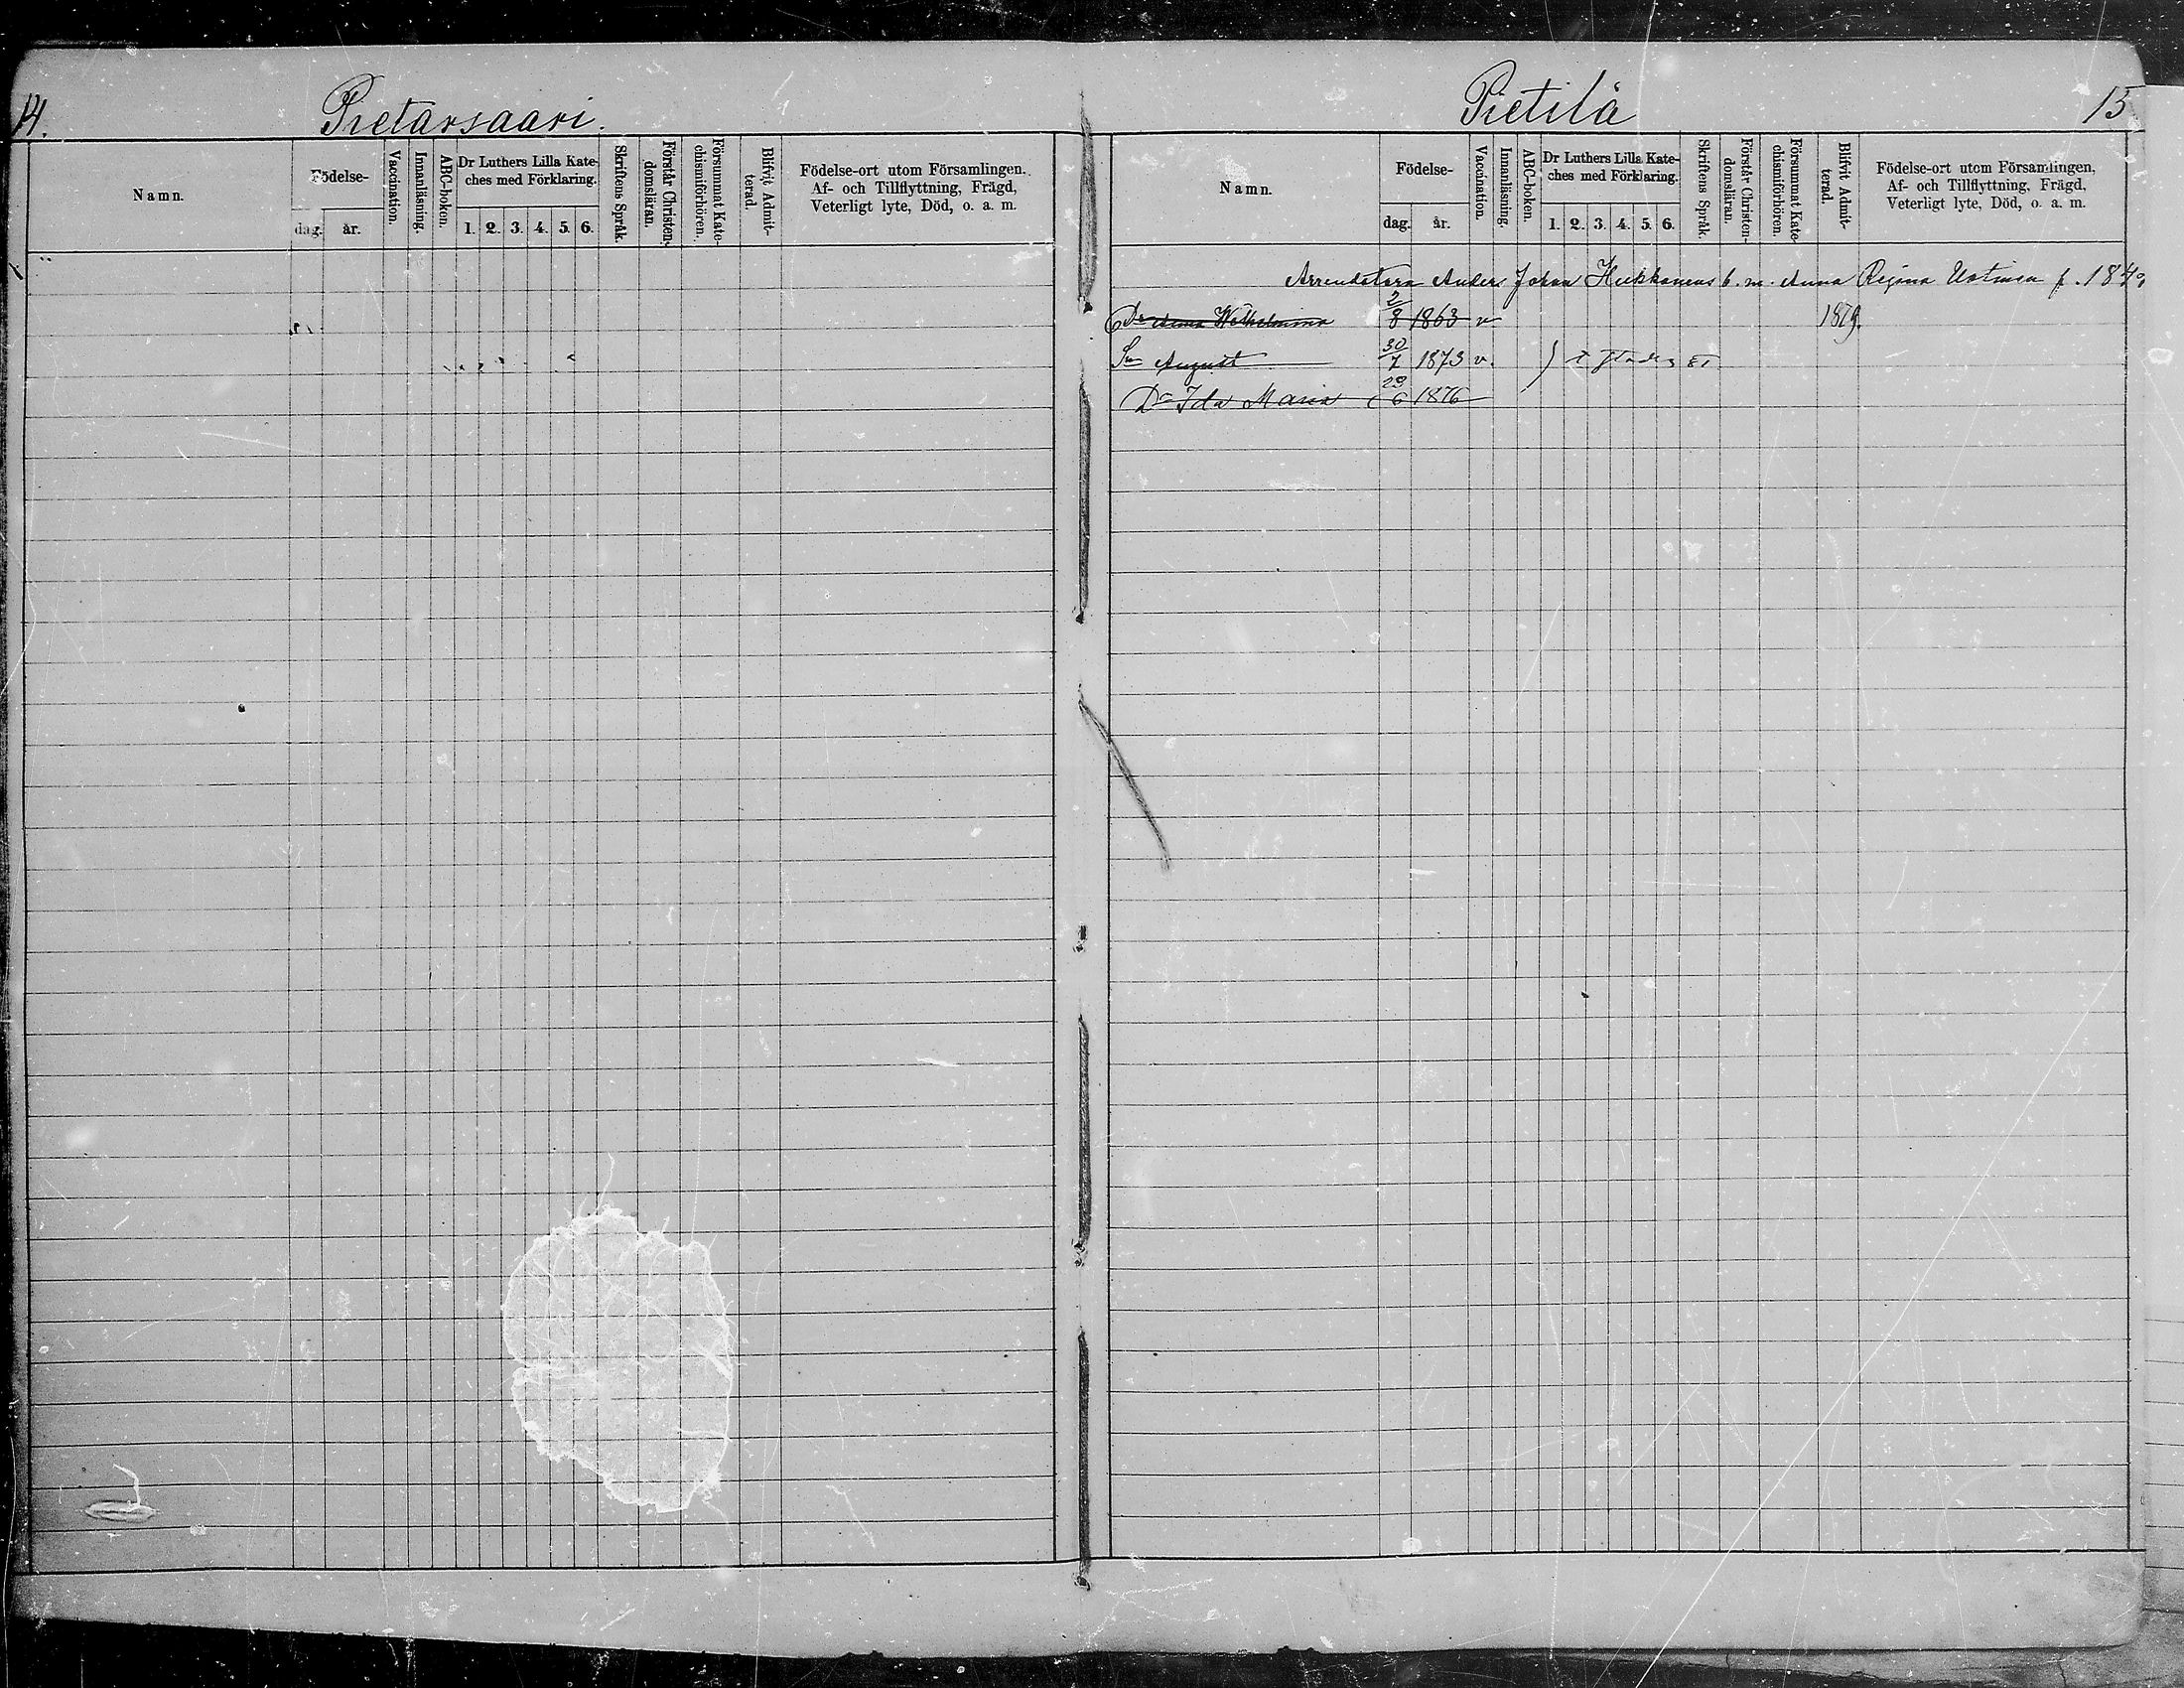 14.
Pietarsaari.
Namn.
Födelse-
dag.
år.
Vaccination.
Innanläsning.
ABC-boken.
Dr Luthers Lilla Kate-
ches med Förklaring.
1. 2. 3. 4. 5. 6.
Skriftens Språk.
Förstår Christen-
domsläran.
Försummat Kate-
chismiförhören.
Blifvit Admit-
terad.
Födelse-ort utom Församlingen.
Af- och Tillflyttning, Frägd,
Veterligt lyte, Död, o. a. m.
Pietilä
15
Namn.
Födelse-
dag.
år.
Vaccination.
Innanläsning.
ABC-boken.
Dr Luthers Lilla Kate-
ches med Förklaring.
1. 2. 3. 4. 5. 6.
Skriftens Språk.
Förstår Christen-
domsläran.
Försummat Kate-
chismiförhören.
Blifvit Admit-
terad.
Födelse-ort utom Församlingen,
Af- och Tillflyttning, Frägd,
Veterligt lyte, Död, o. a. m.
Arrendatorn Anders Johan Hukkanens b. m. Anna Regina
Dr Wilhelmina 2/8 1863 v 1879.
Sn August 30/7 1873 v.
Dr Ida Maria 29/6 1876